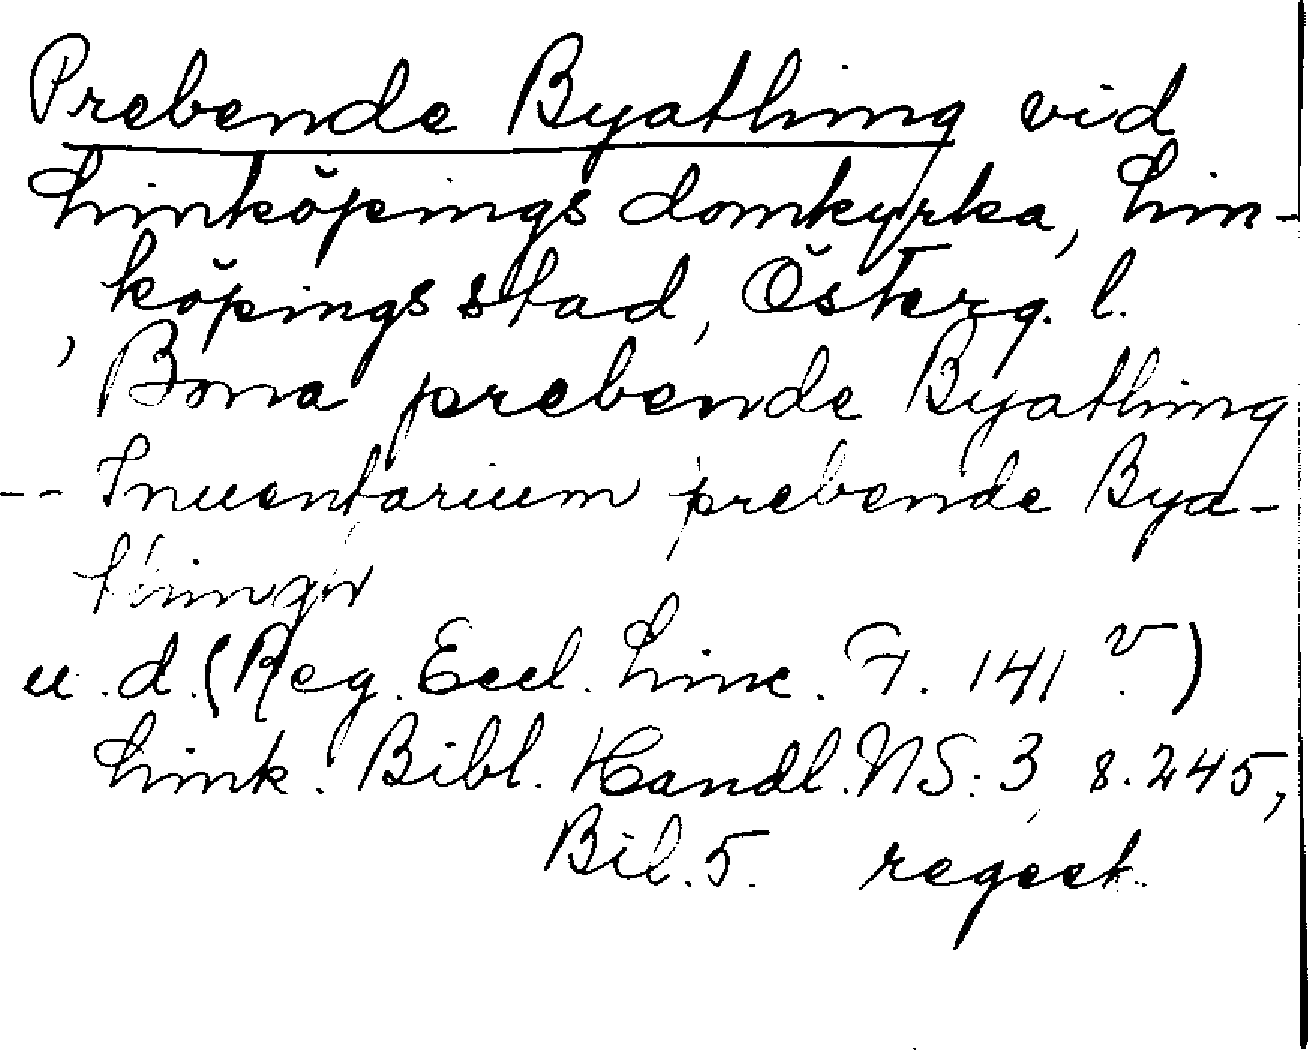 Prebende Byathing vid
Linköpings domkyrka, Lin-
köpings stad, Österg. l.
, Bona prebende Byathing
-- Inuentarium prebende Bya-
thingh
u.d. (Reg. Eccl. Linc. F. 141 v)
Link. Bibl. Handl. NS: 3, s. 245,
Bil. 5. regest.